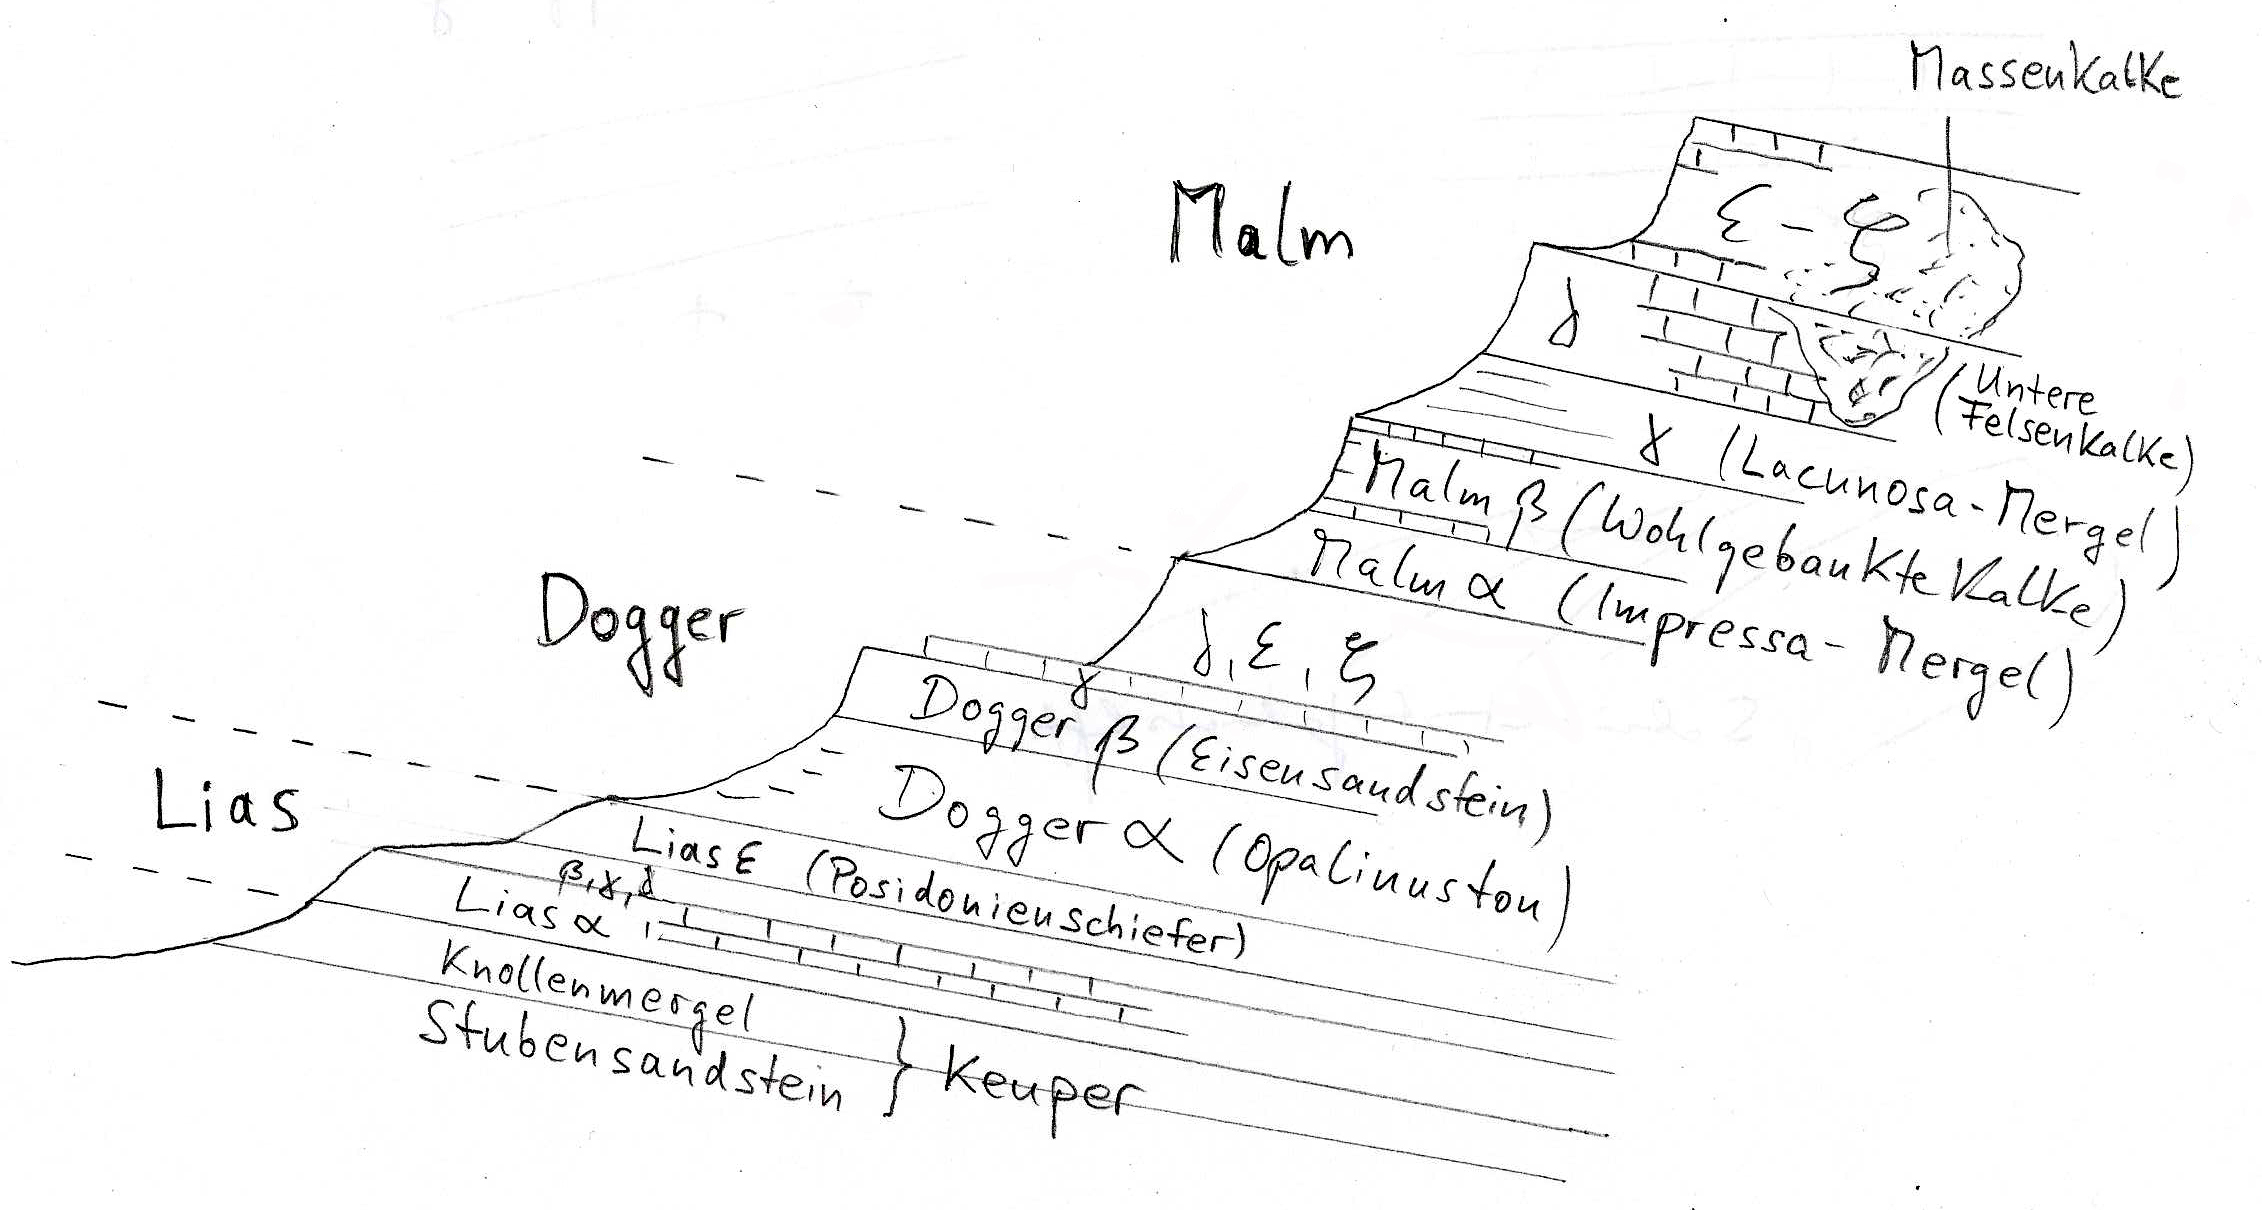 Massenkalke
Malm
ε - ζ
δ
(Untere
Felsenkalke)
γ (Lacunosa-Mergel)
Malm β (Wohlgebankte Kalke)
Malm α (Impressa-Mergel)
Dogger
δ, ε, ζ
γ
Dogger β (Eisensandstein)
Dogger α (Opalinuston)
Lias
Lias ε (Posidonienschiefer)
β, γ, δ
Lias α
Knollenmergel
Stubensandstein } Keuper